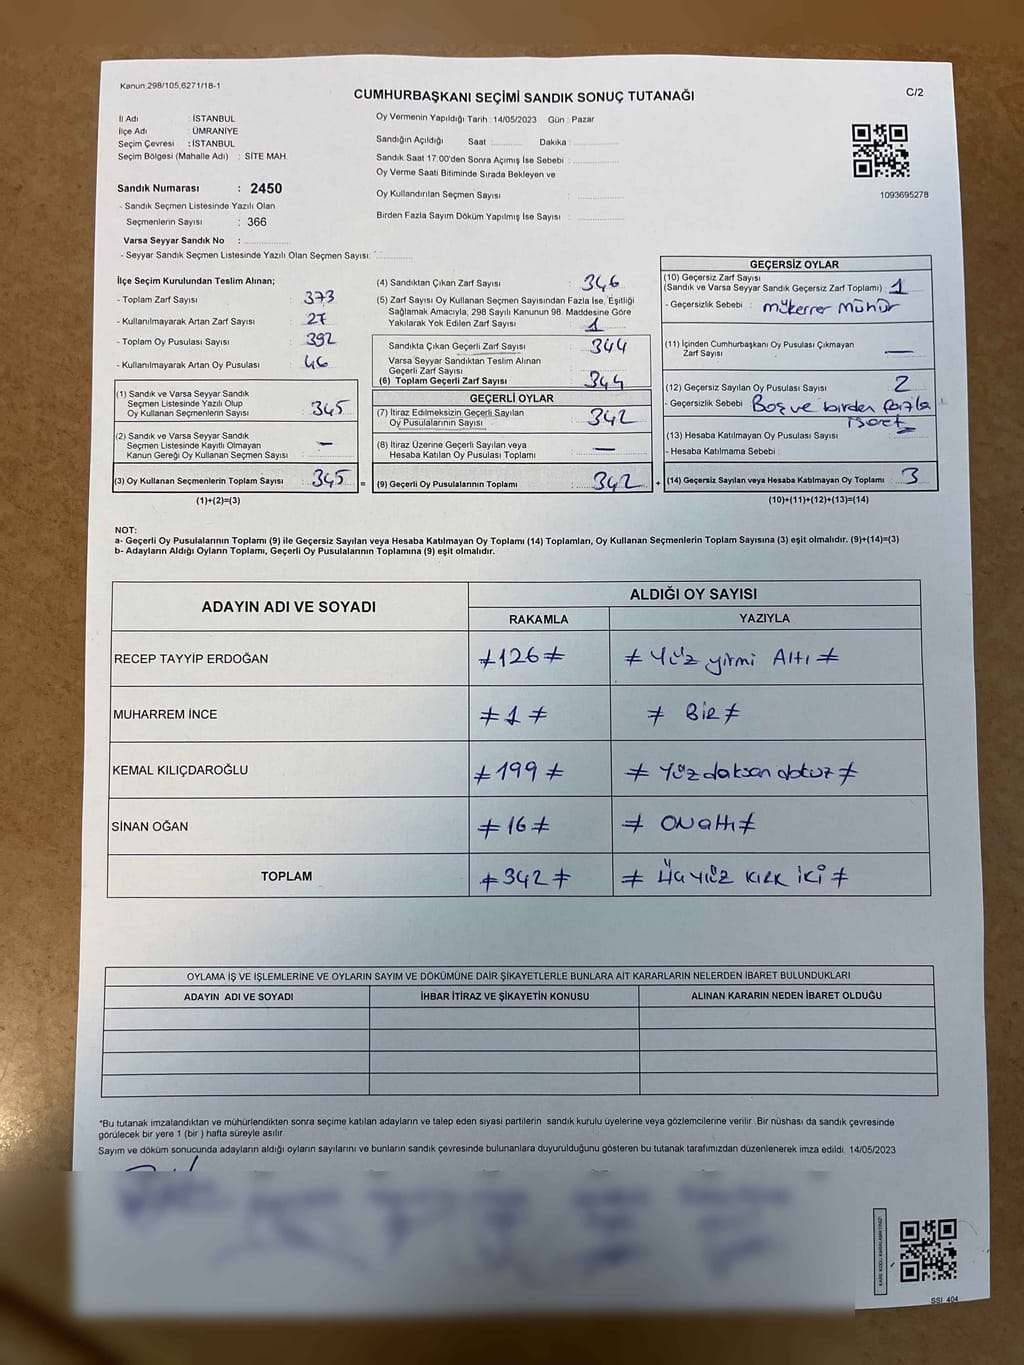 Kanun,298/105,6271/18-1
CUMHURBAŞKANI SEÇİMİ SANDIK SONUÇ TUTANAĞI
C/2
İl Adı : İSTANBUL
İlçe Adı : ÜMRANİYE
Seçim Çevresi : İSTANBUL
Seçim Bölgesi (Mahalle Adı) : SİTE MAH.
Sandık Numarası : 2450
- Sandık Seçmen Listesinde Yazılı Olan
Seçmenlerin Sayısı : 366
Varsa Seyyar Sandık No :
- Seyyar Sandık Seçmen Listesinde Yazılı Olan Seçmen Sayısı:
Oy Vermenin Yapıldığı Tarih : 14/05/2023 Gün : Pazar
Sandığın Açıldığı Saat : Dakika :
Sandık Saat 17:00'den Sonra Açımış İse Sebebi :
Oy Verme Saati Bitiminde Sırada Bekleyen ve
Oy Kullandırılan Seçmen Sayısı :
Birden Fazla Sayım Döküm Yapılmış İse Sayısı :
1093695278
İlçe Seçim Kurulundan Teslim Alınan;
- Toplam Zarf Sayısı : 373
- Kullanılmayarak Artan Zarf Sayısı : 27
- Toplam Oy Pusulası Sayısı : 392
- Kullanılmayarak Artan Oy Pusulası : 46
(1) Sandık ve Varsa Seyyar Sandık
Seçmen Listesinde Yazılı Olup
Oy Kullanan Seçmenlerin Sayısı : 345
(2) Sandık ve Varsa Seyyar Sandık
Seçmen Listesinde Kayıtlı Olmayan
Kanun Gereği Oy Kullanan Seçmen Sayısı : —
(3) Oy Kullanan Seçmenlerin Toplam Sayısı : 345 =
(1)+(2)=(3)
(4) Sandıktan Çıkan Zarf Sayısı : 346
(5) Zarf Sayısı Oy Kullanan Seçmen Sayısından Fazla İse, Eşitliği
Sağlamak Amacıyla, 298 Sayılı Kanunun 98. Maddesine Göre
Yakılarak Yok Edilen Zarf Sayısı : 1
Sandıkta Çıkan Geçerli Zarf Sayısı : 344
Varsa Seyyar Sandıktan Teslim Alınan
Geçerli Zarf Sayısı :
(6) Toplam Geçerli Zarf Sayısı : 344
GEÇERLİ OYLAR
(7) İtiraz Edilmeksizin Geçerli Sayılan
Oy Pusulalarının Sayısı : 342
(8) İtiraz Üzerine Geçerli Sayılan veya
Hesaba Katılan Oy Pusulası Toplamı : —
(9) Geçerli Oy Pusulalarının Toplamı : 342 +
GEÇERSİZ OYLAR
(10) Geçersiz Zarf Sayısı
(Sandık ve Varsa Seyyar Sandık Geçersiz Zarf Toplamı) : 1
- Geçersizlik Sebebi : mükerrer mühür
(11) İçinden Cumhurbaşkanı Oy Pusulası Çıkmayan
Zarf Sayısı : —
(12) Geçersiz Sayılan Oy Pusulası Sayısı : 2
- Geçersizlik Sebebi : Boş ve birden fazla
işaret
(13) Hesaba Katılmayan Oy Pusulası Sayısı :
- Hesaba Katılmama Sebebi :
(14) Geçersiz Sayılan veya Hesaba Katılmayan Oy Toplamı : 3
(10)+(11)+(12)+(13)=(14)
NOT:
a- Geçerli Oy Pusulalarının Toplamı (9) ile Geçersiz Sayılan veya Hesaba Katılmayan Oy Toplamı (14) Toplamları, Oy Kullanan Seçmenlerin Toplam Sayısına (3) eşit olmalıdır. (9)+(14)=(3)
b- Adayların Aldığı Oyların Toplamı, Geçerli Oy Pusulalarının Toplamına (9) eşit olmalıdır.
ADAYIN ADI VE SOYADI
ALDIĞI OY SAYISI
RAKAMLA YAZIYLA
RECEP TAYYİP ERDOĞAN ≠126≠ ≠ Yüz yirmi Altı ≠
MUHARREM İNCE ≠ 1 ≠ ≠ Bir ≠
KEMAL KILIÇDAROĞLU ≠199≠ ≠ Yüz doksan dokuz ≠
SİNAN OĞAN ≠16≠ ≠ On altı ≠
TOPLAM ≠342≠ ≠ Üç yüz kırk iki ≠
OYLAMA İŞ VE İŞLEMLERİNE VE OYLARIN SAYIM VE DÖKÜMÜNE DAİR ŞİKAYETLERLE BUNLARA AİT KARARLARIN NELERDEN İBARET BULUNDUKLARI
ADAYIN ADI VE SOYADI İHBAR İTİRAZ VE ŞİKAYETİN KONUSU ALINAN KARARIN NEDEN İBARET OLDUĞU
*Bu tutanak imzalandıktan ve mühürlendikten sonra seçime katılan adayların ve talep eden siyasi partilerin sandık kurulu üyelerine veya gözlemcilerine verilir. Bir nüshası da sandık çevresinde
görülecek bir yere 1 (bir ) hafta süreyle asılır
Sayım ve döküm sonucunda adayların aldığı oyların sayılarını ve bunların sandık çevresinde bulunanlara duyurulduğunu gösteren bu tutanak tarafımızdan düzenlenerek imza edildi. 14/05/2023
KARE KODU KARALAMAYINIZ!
SSİ_404